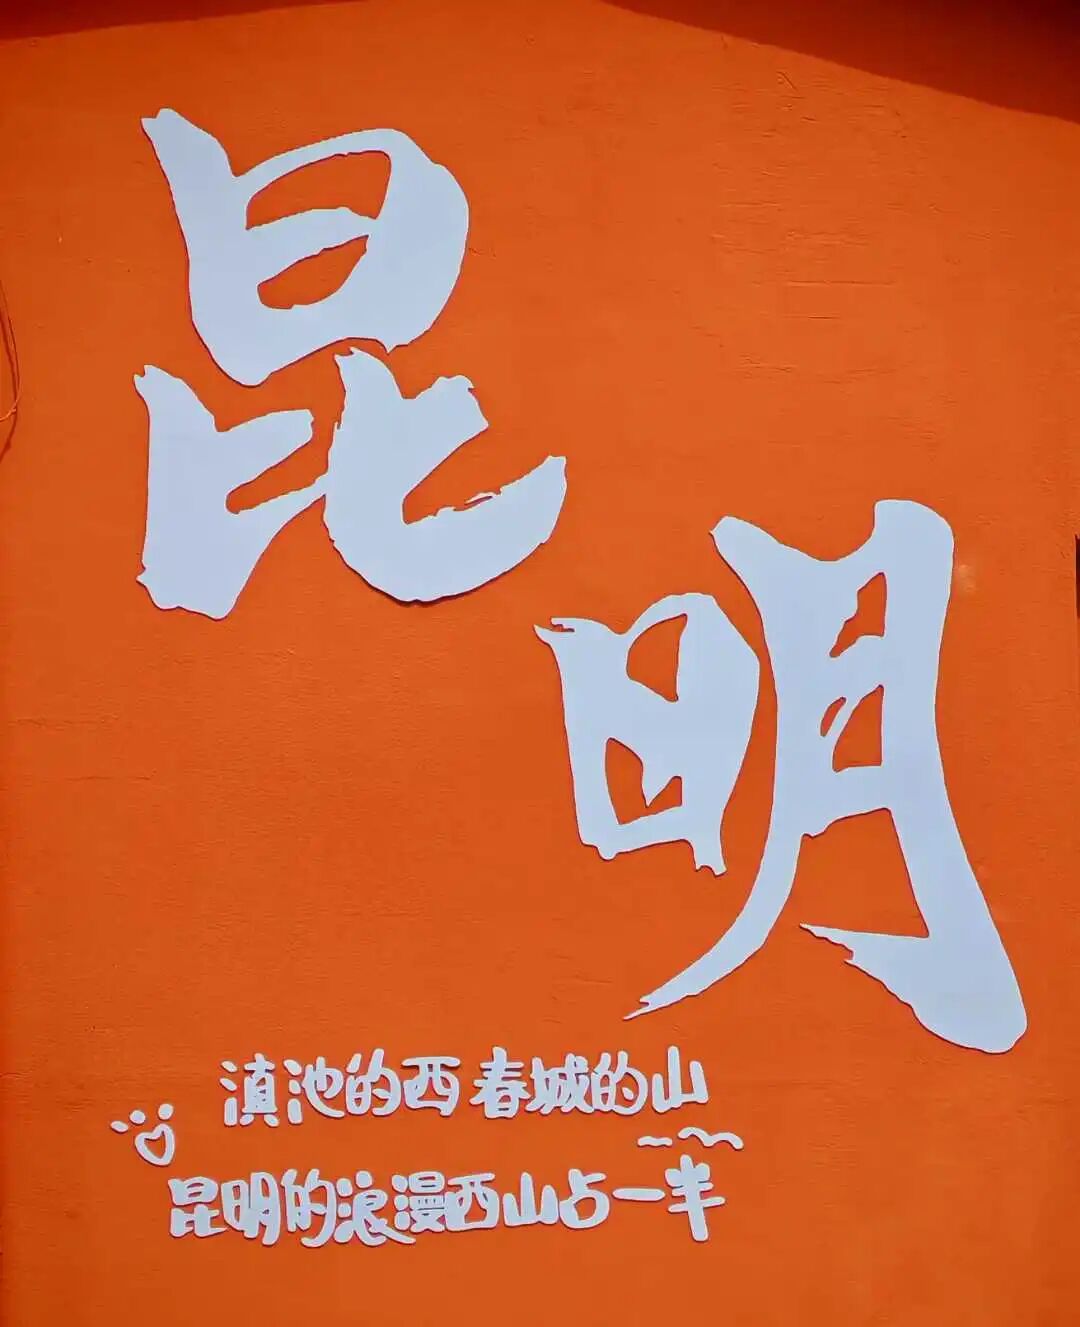 昆明
滇池的西 春城的山
昆明的浪漫西山占一半